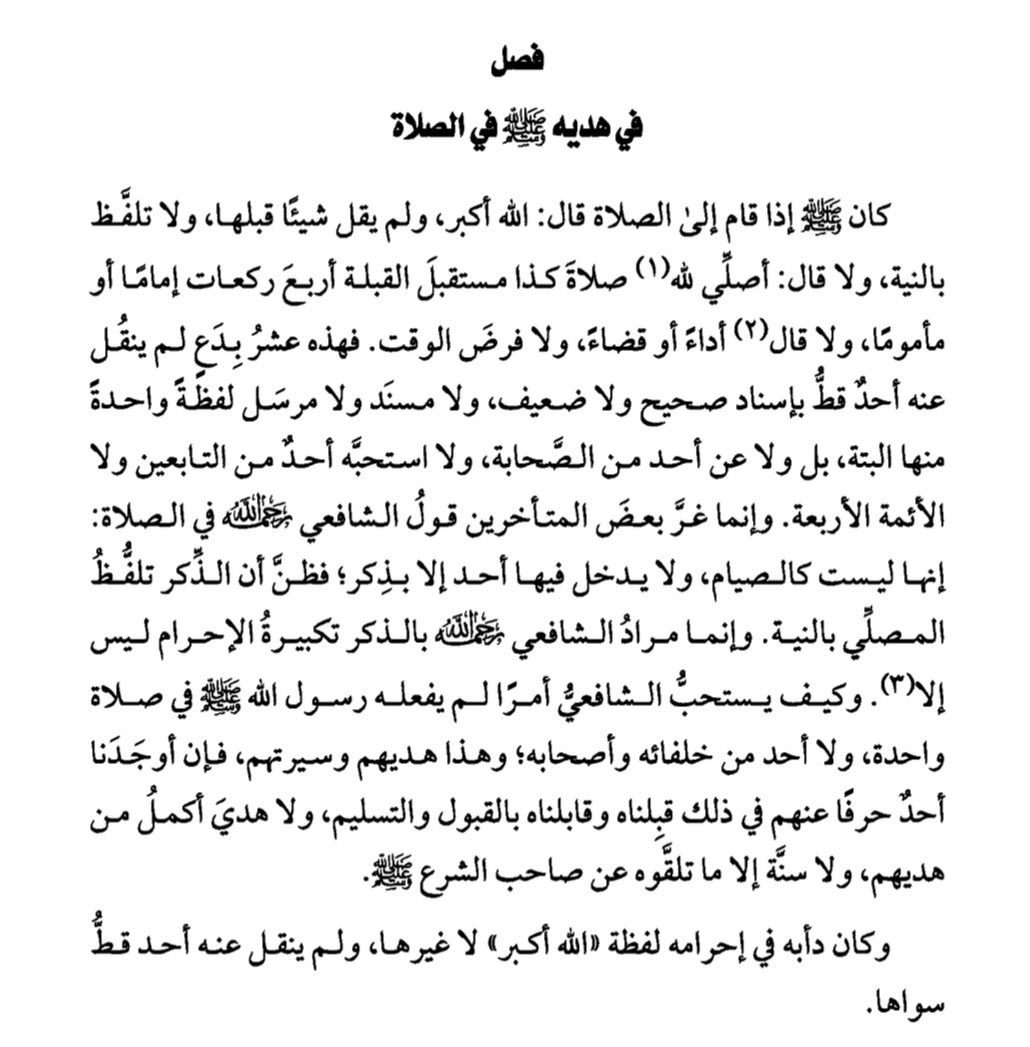 فصل
في هديه ﷺ في الصلاة
كان ﷺ إذا قام إلىٰ الصلاة قال: الله أكبر، ولم يقل شيئًا قبلها، ولا تلفَّظ
بالنية، ولا قال: أصلِّي لله(١) صلاةَ كذا مستقبلَ القبلة أربعَ ركعات إمامًا أو
مأمومًا، ولا قال(٢) أداءً أو قضاءً، ولا فرضَ الوقت. فهذه عشرُ بِدَعٍ لم ينقُل
عنه أحدٌ قطُّ بإسناد صحيح ولا ضعيف، ولا مسنَد ولا مرسَل لفظةً واحدةً
منها البتة، بل ولا عن أحد من الصَّحابة، ولا استحبَّه أحدٌ من التابعين ولا
الأئمة الأربعة. وإنما غرَّ بعضَ المتأخرين قولُ الشافعي رحمه الله في الصلاة:
إنها ليست كالصيام، ولا يدخل فيها أحد إلا بذِكر؛ فظنَّ أن الذِّكر تلفُّظُ
المصلِّي بالنية. وإنما مرادُ الشافعي رحمه الله بالذكر تكبيرةُ الإحرام ليس
إلا(٣). وكيف يستحبُّ الشافعيُّ أمرًا لم يفعله رسول الله ﷺ في صلاة
واحدة، ولا أحد من خلفائه وأصحابه؛ وهذا هديهم وسيرتهم، فإن أوجَدَنا
أحدٌ حرفًا عنهم في ذلك قبِلناه وقابلناه بالقبول والتسليم، ولا هديَ أكملُ من
هديهم، ولا سنَّة إلا ما تلقَّوه عن صاحب الشرع ﷺ.
وكان دأبه في إحرامه لفظة «الله أكبر» لا غيرها، ولم ينقل عنه أحد قطُّ
سواها.